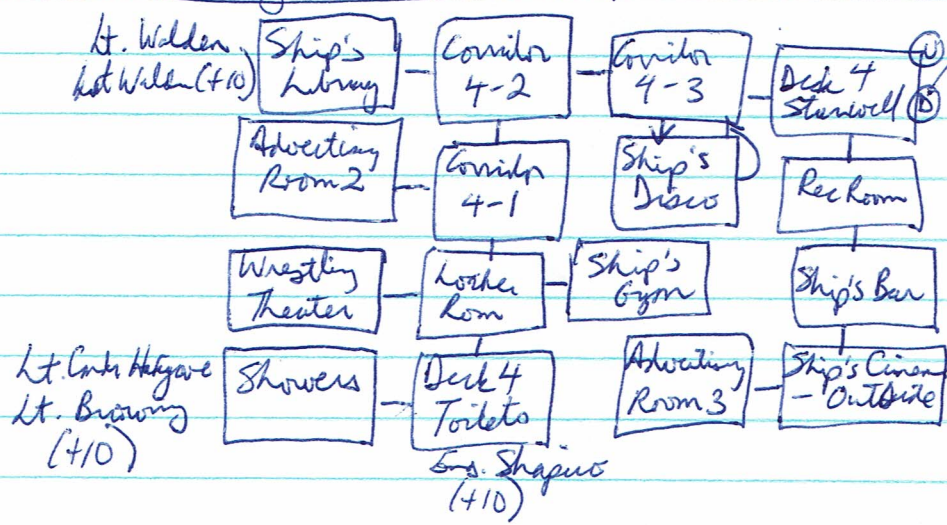 Lt. Walden,
Lost Walden (+10)
Ship's
Library
Corridor
4-2
Corridor
4-3
Deck 4
Stairwell
U
D
Advertising
Room 2
Corridor
4-1
Ship's
Disco
Rec Room
Wrestling
Theater
Locker
Room
Ship's
Gym
Ship's Bar
Lt. Cmdr Hargrave
Lt. Browning
(+10)
Showers
Deck 4
Toilets
Advertising
Room 3
Ship's Cinema
- Outside
Ens. Shapiro
(+10)